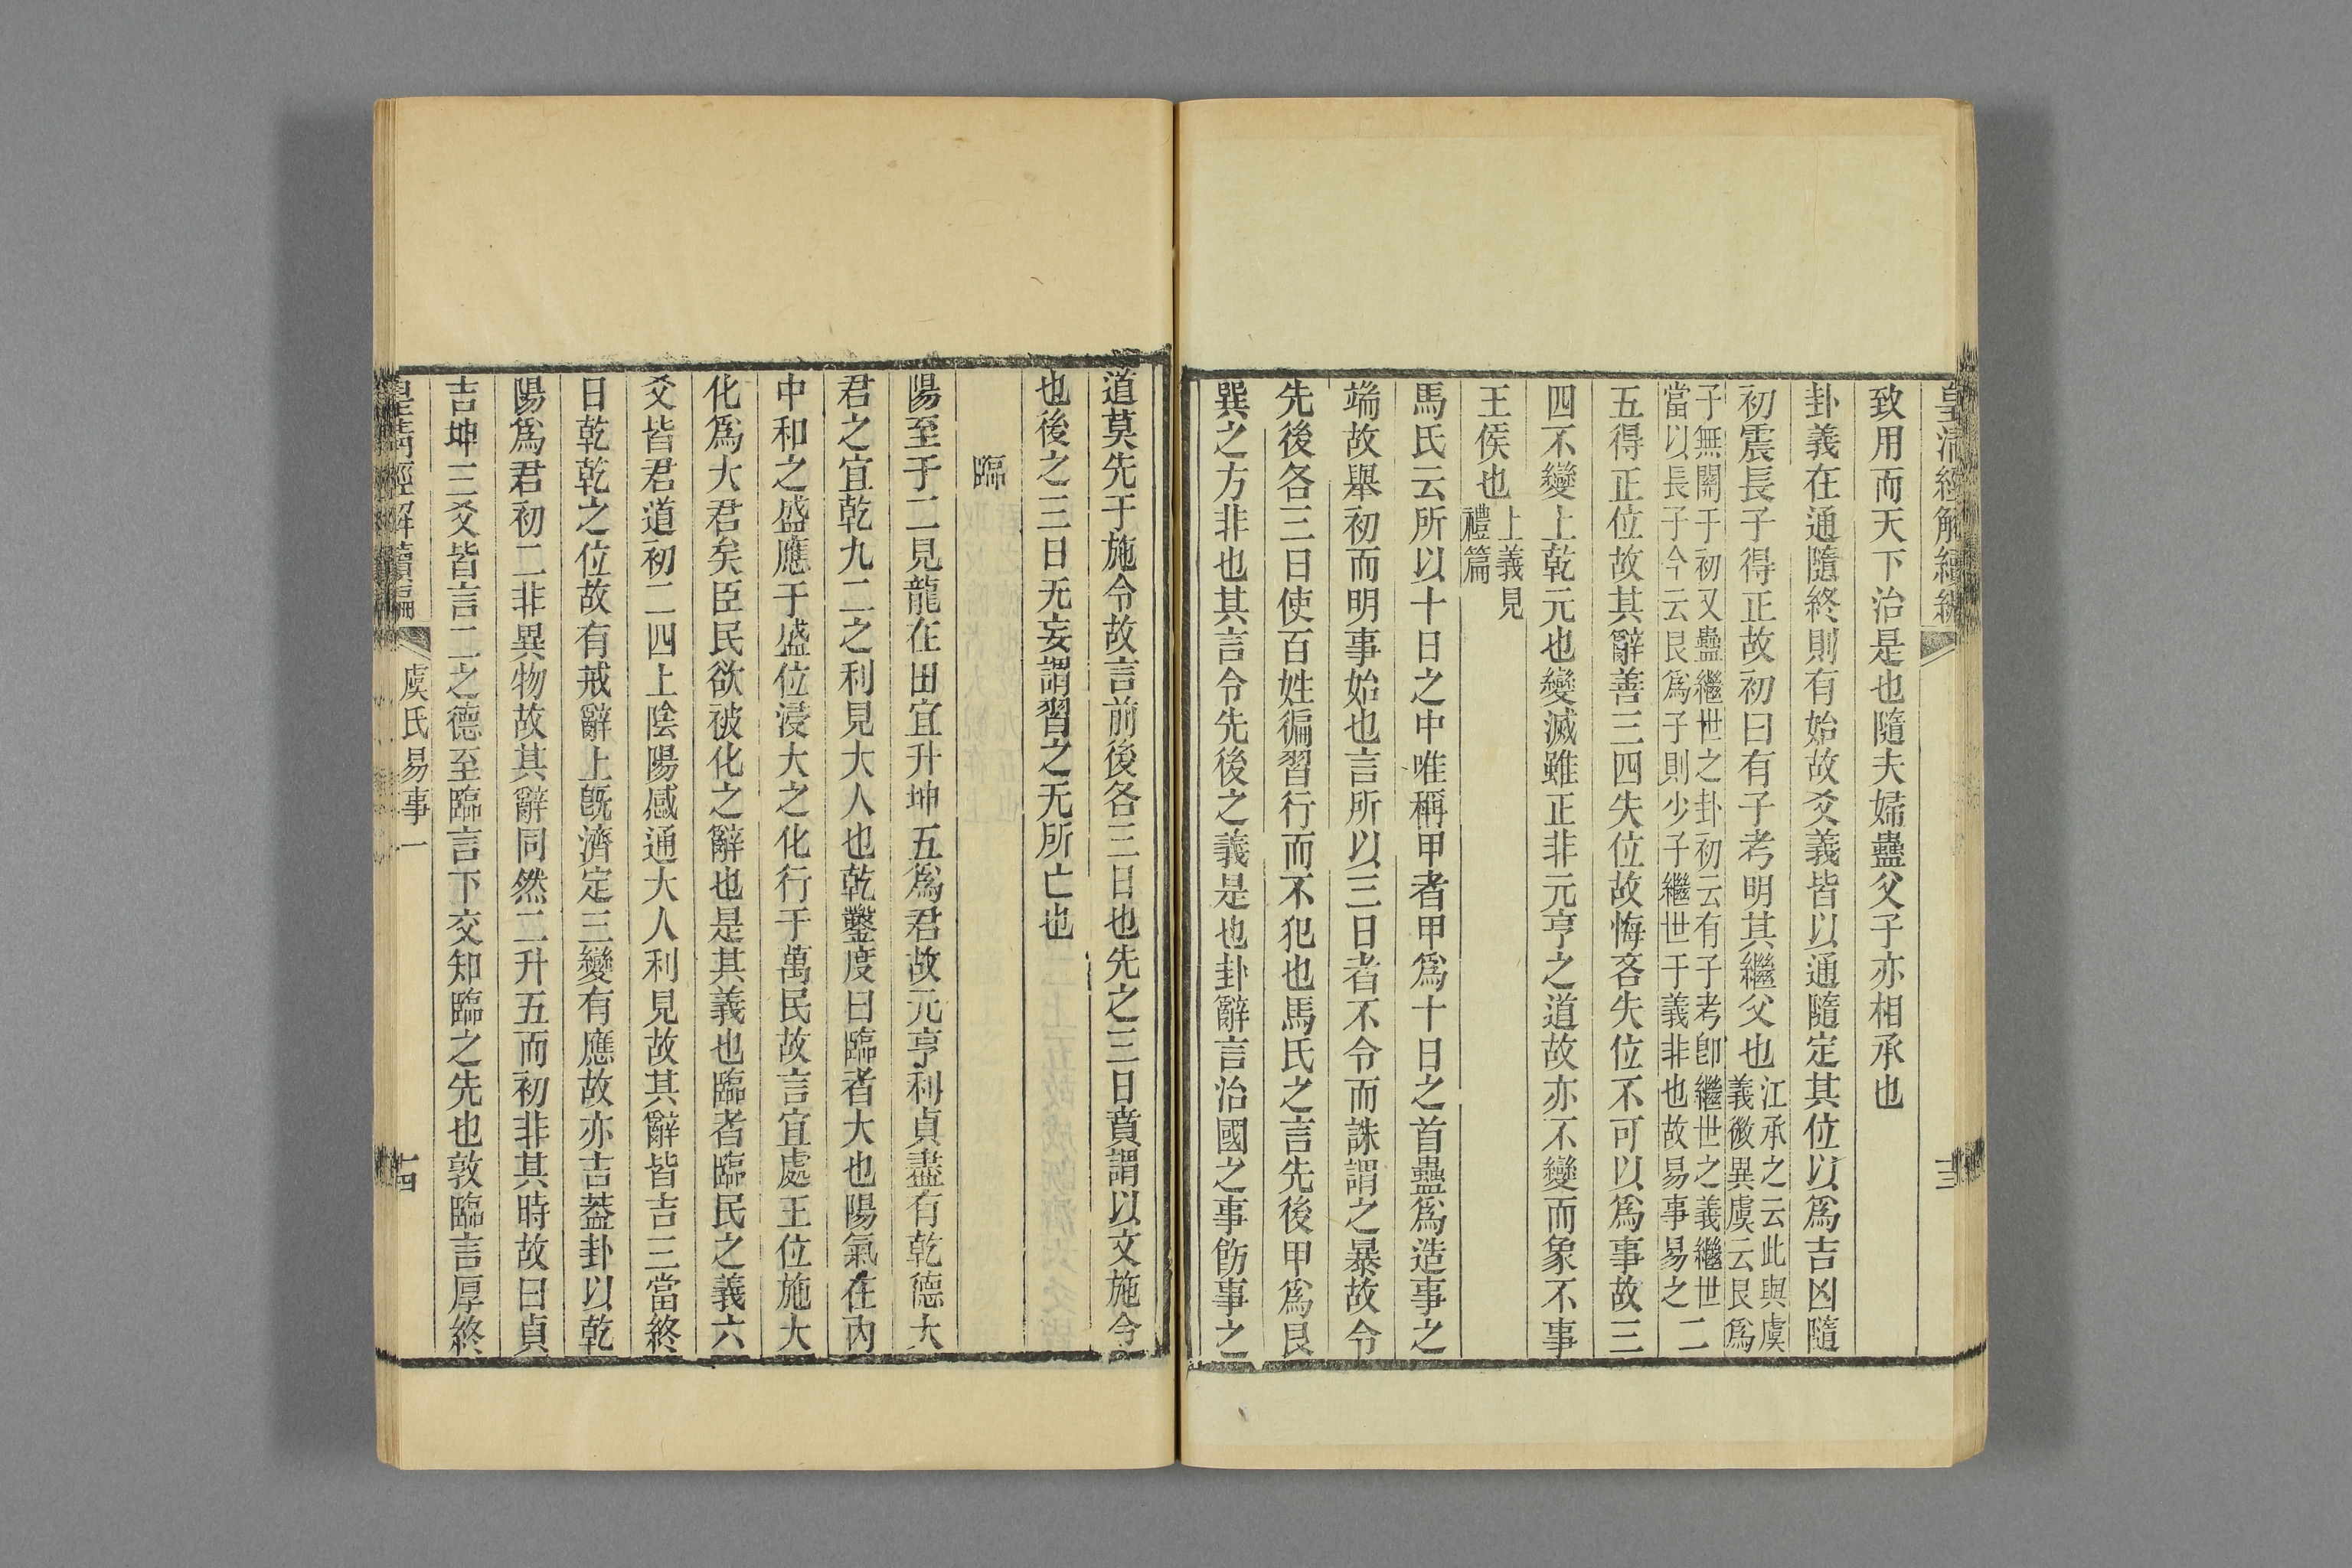 皇清經解續編
十三
致用而天下治是也隨夫婦蠱父子亦相承也
卦義在通隨終則有始故爻義皆以通隨定其位以爲吉凶隨
初震長子得正故初曰有子考明其繼父也江承之云此與虞義微異虞云艮爲
子無關于初又蠱繼世之卦初云有子考卽繼世之義繼世二
當以長子今云艮爲子則少子繼世于義非也故易事易之
五得正位故其辭善三四失位故悔吝失位不可以爲事故三
四不變上乾元也變滅雖正非元亨之道故亦不變而象不事
王侯也上義見禮篇
馬氏云所以十日之中唯稱甲者甲爲十日之首蠱爲造事之
端故舉初而明事始也言所以三日者不令而誅謂之暴故令
先後各三日使百姓徧習行而不犯也馬氏之言先後甲爲艮
巽之方非也其言令先後之義是也卦辭言治國之事飭事之
道莫先于施令故言前後各三日也先之三日賁謂以文施令
也後之三日无妄謂習之无所亡也
臨
陽至于二見龍在田宜升坤五爲君故元亨利貞盡有乾德大
君之宜乾九二之利見大人也乾鑿度曰臨者大也陽氣在內
中和之盛應于盛位浸大之化行于萬民故言宜處王位施大
化爲大君矣臣民欲被化之辭也是其義也臨者臨民之義六
爻皆君道初二四上陰陽感通大人利見故其辭皆吉三當終
日乾乾之位故有戒辭上旣濟定三變有應故亦吉葢卦以乾
陽爲君初二非異物故其辭同然二升五而初非其時故曰貞
吉坤三爻皆言二之德至臨言下交知臨之先也敦臨言厚終
皇淸經解續編
虞氏易事一
十四